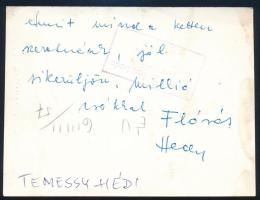 amit mind a ketten
szeretnénk, jól
sikerüljön, millió
csókkal Flórás
Hedy
TEMESSY HÉDI